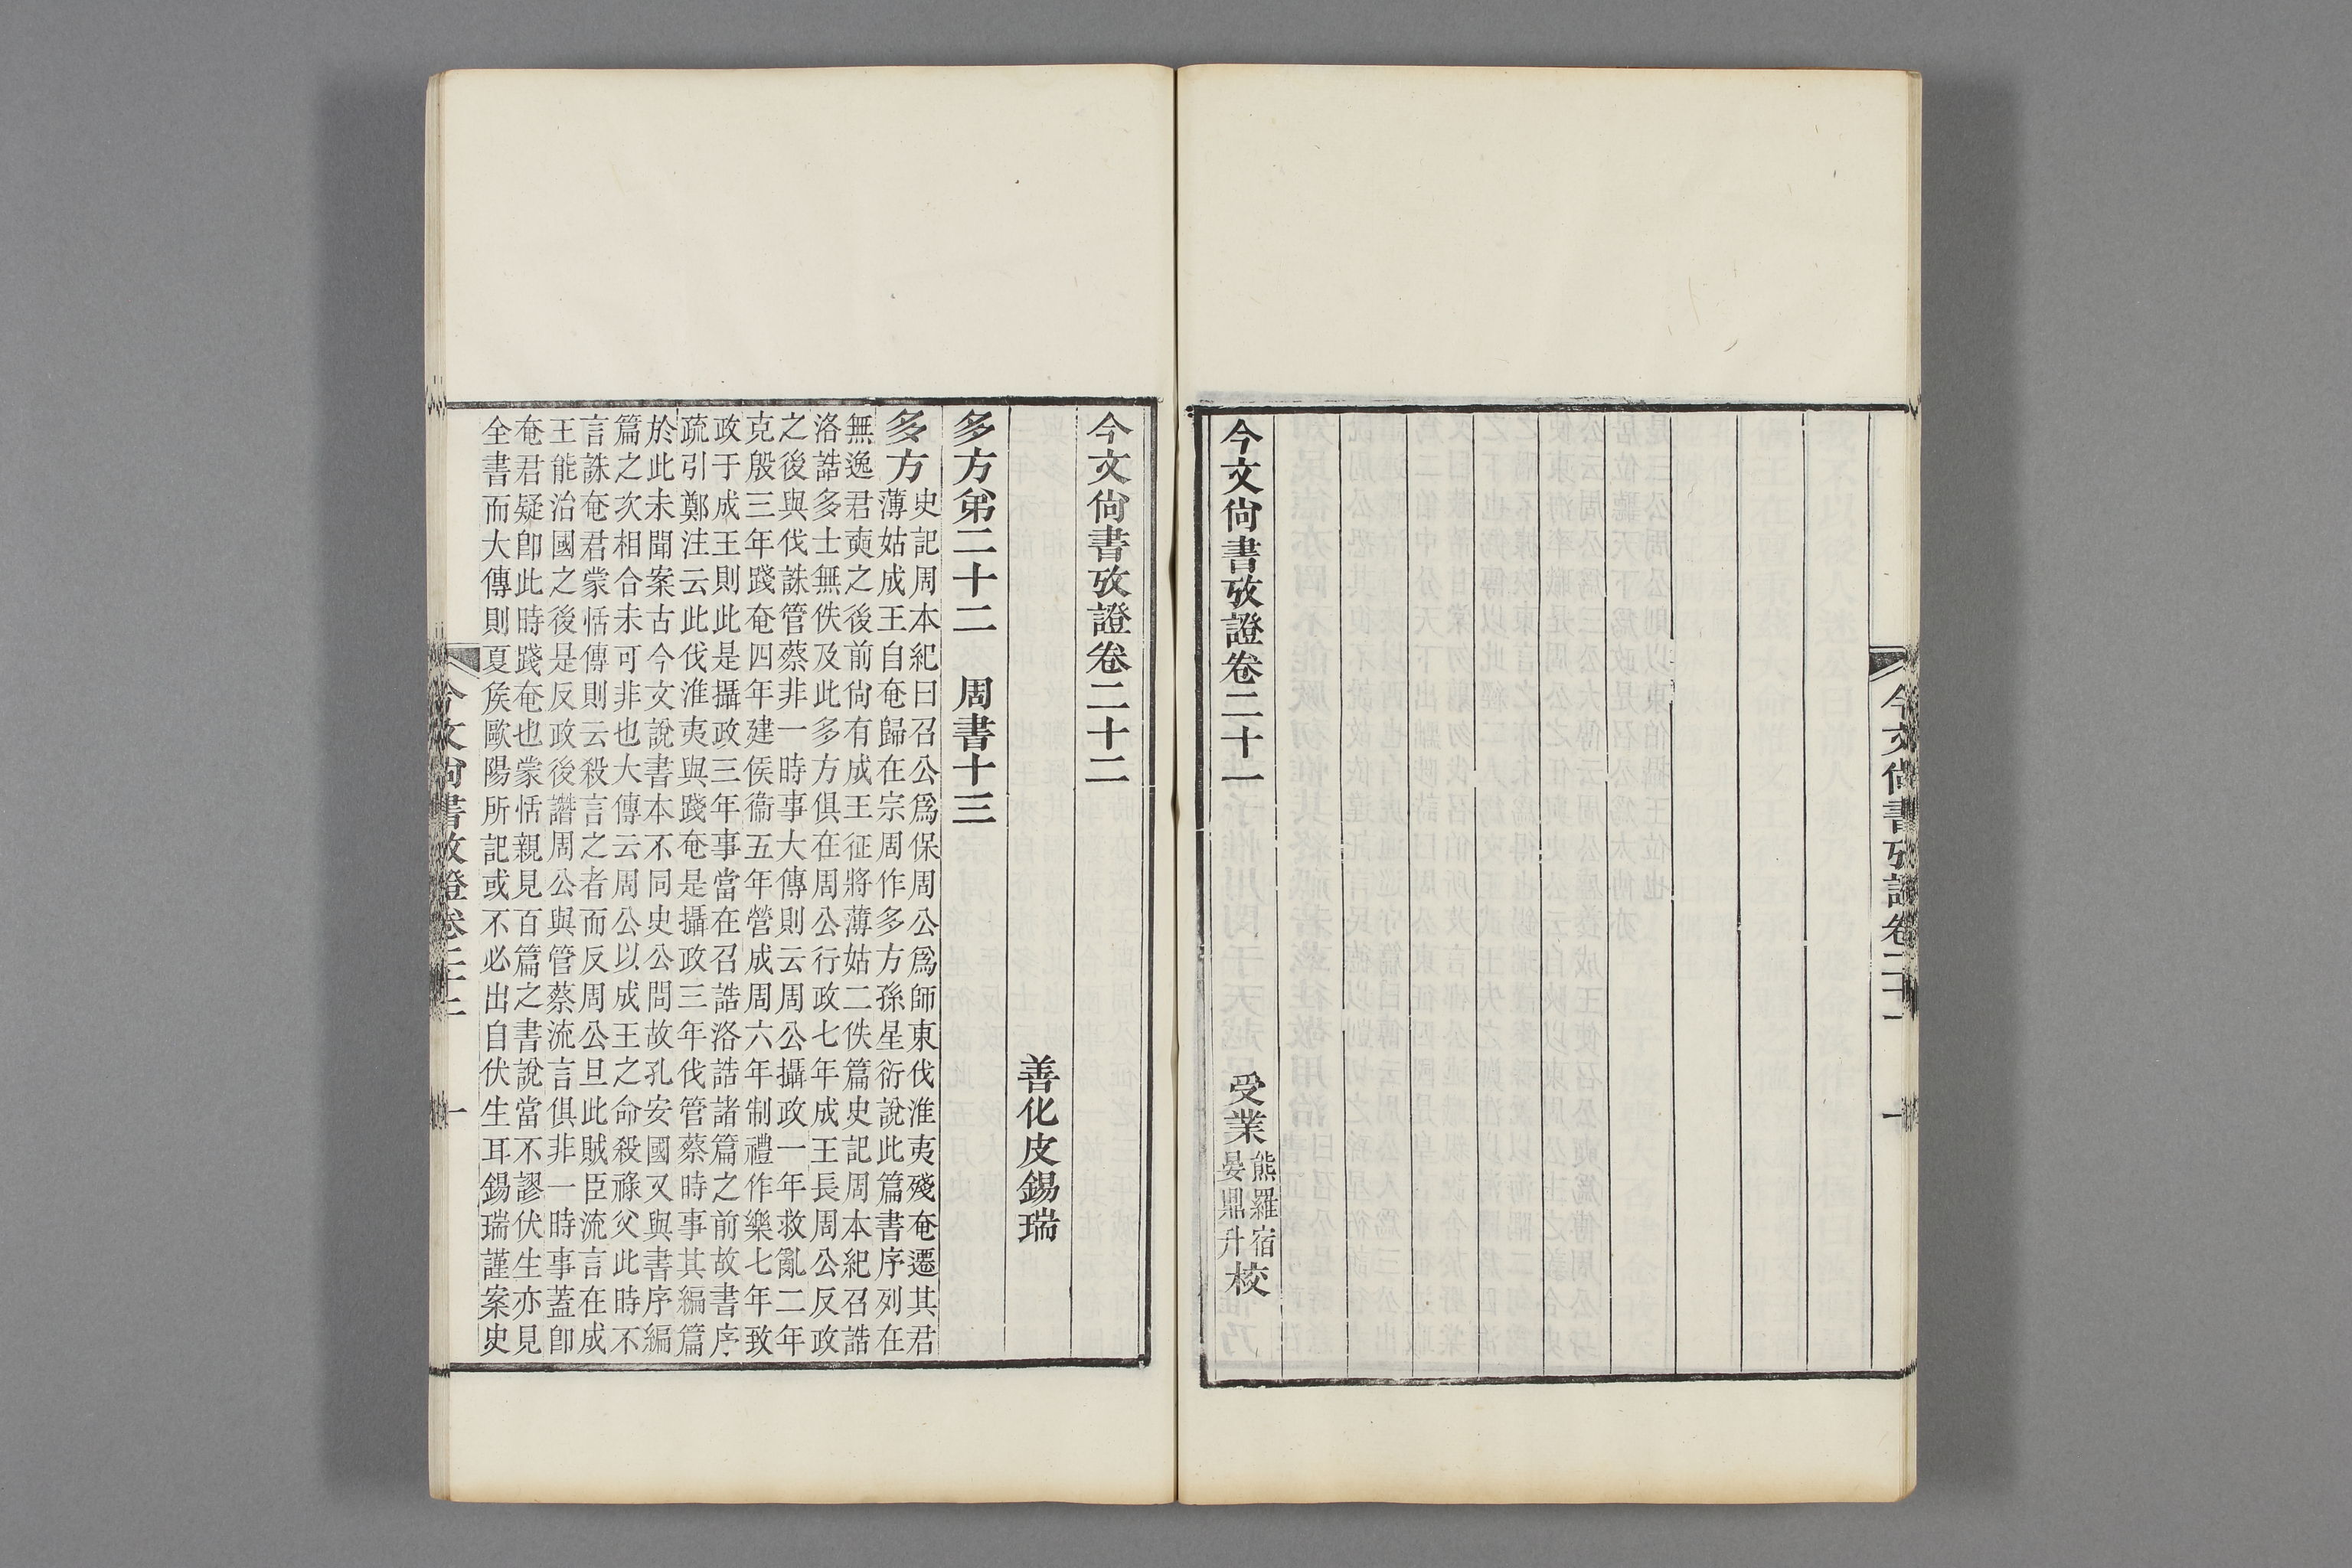 今文尙書攷證卷二十一
今文尙書攷證卷二十一 受業
熊羅宿
晏鼎升
校
今文尙書攷證卷二十二
善化皮錫瑞
多方弟二十二 周書十三
多方
史記周本紀曰召公爲保周公爲師東伐淮夷殘奄遷其君
薄姑成王自奄歸在宗周作多方孫星衍說此篇書序列在
無逸君奭之後前尙有成王征將薄姑二佚篇史記周本紀召誥
洛誥多士無佚及此多方俱在周公行政七年成王長周公反政
之後與伐誅管蔡非一時事大傳則云周公攝政一年救亂二年
克殷三年踐奄四年建侯衞五年營成周六年制禮作樂七年致
政于成王則此是攝政三年事當在召誥洛誥諸篇之前故書序
疏引鄭注云此伐淮夷與踐奄是攝政三年伐管蔡時事其編篇
於此未聞案古今文說書本不同史公問故孔安國又與書序編
篇之次相合未可非也大傳云周公以成王之命殺祿父此時不
言誅奄君蒙恬傳則云殺言之者而反周公旦此賊臣流言在成
王能治國之後是反政後譖周公與管蔡流言俱非一時事蓋卽
奄君疑卽此時踐奄也蒙恬親見百篇之書說當不謬伏生亦見
全書而大傳則夏矦歐陽所記或不必出自伏生耳錫瑞謹案史
今文尙書攷證卷二十二 一